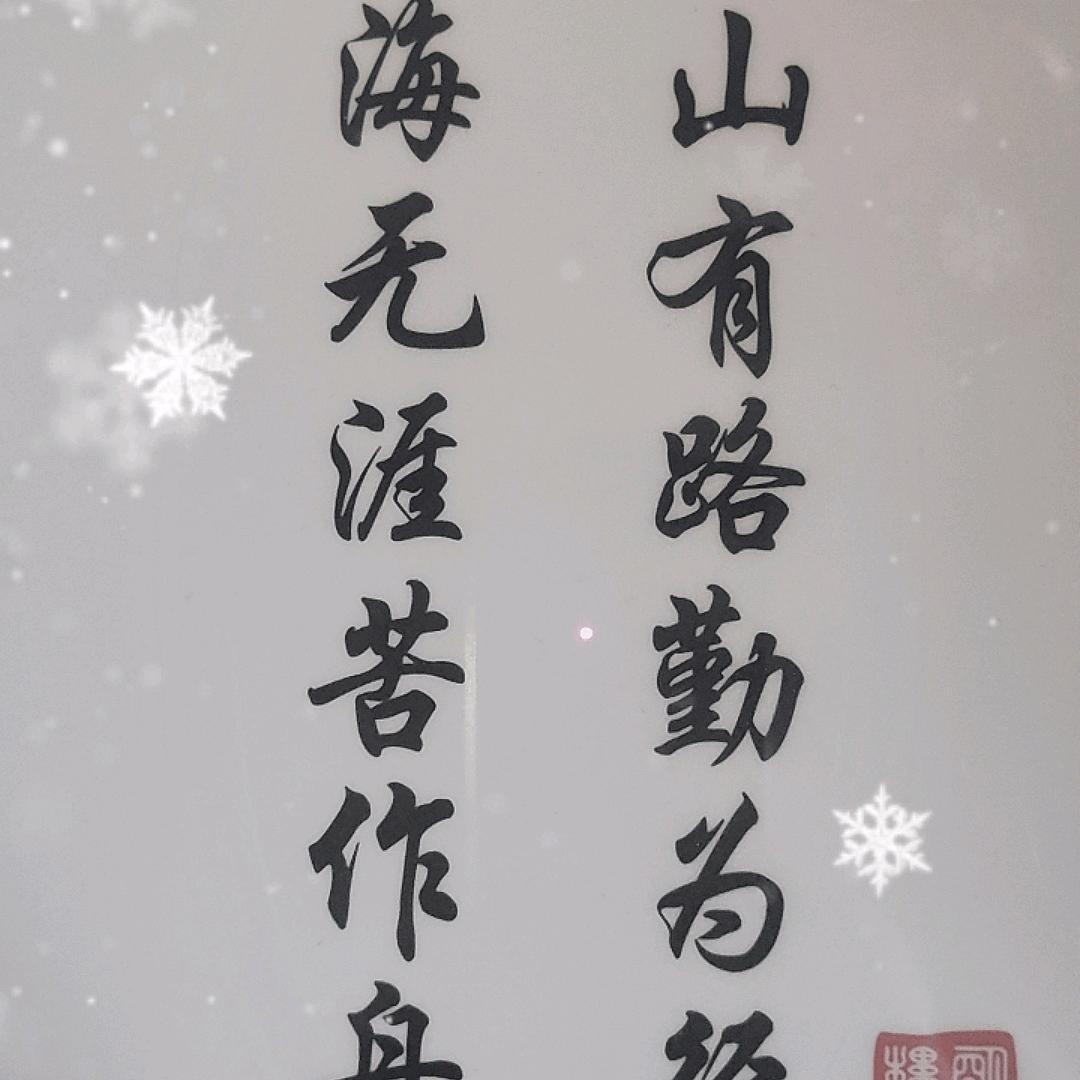 山有路勤为径
海无涯苦作舟